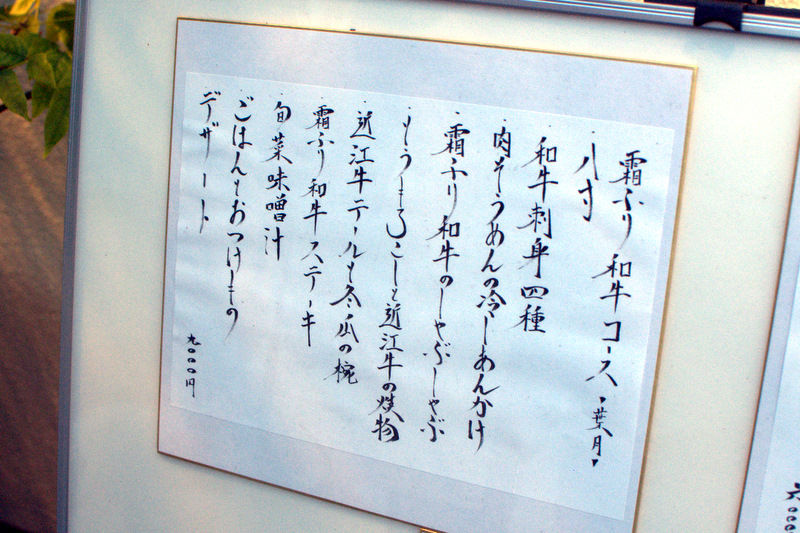 霜ふり和牛コース・葉月・
・八寸
・和牛刺身四種
・肉そうめんの冷しあんかけ
・霜ふり和牛のしゃぶしゃぶ
・もうもろこしと近江牛の焼物
・近江牛テールと冬瓜の椀
・霜ふり和牛ステーキ
・旬菜味噌汁
ごはんとおつけもの
デザート
九〇〇〇円
六〇〇〇